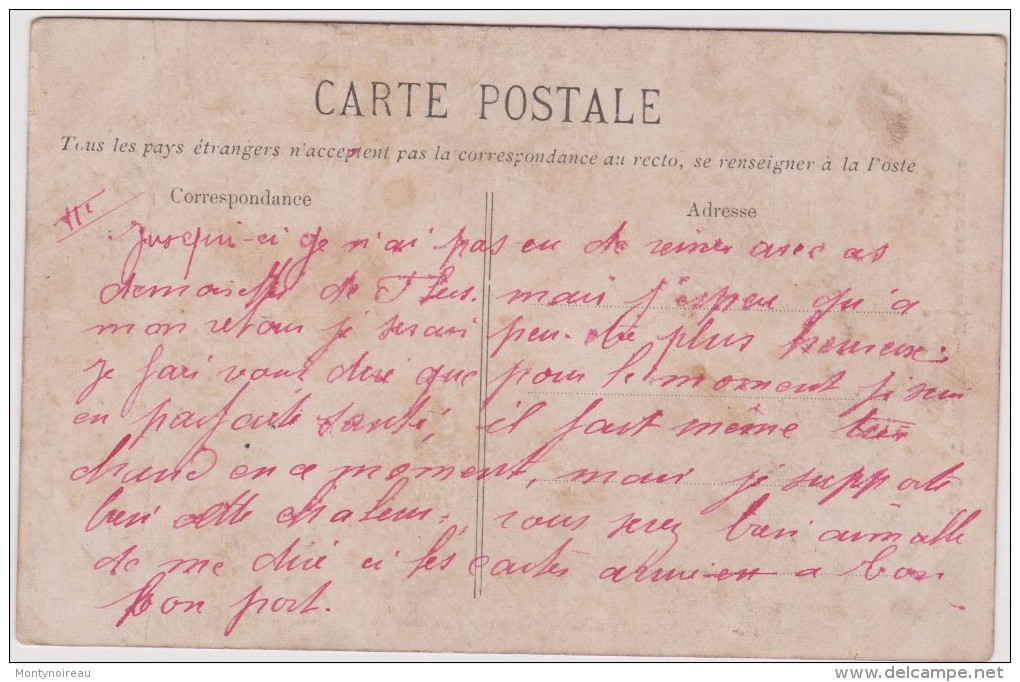 CARTE POSTALE
Tous les pays étrangers n'acceptent pas la correspondance au recto, se renseigner à la Poste
Correspondance
Adresse
Jusqui-ci je n'ai pas eu de avec
demoiselles de mais j'espere qu'a
mon retour je serais peu-etre plus heureux
Je fais vous dire que pour le moment je suis
en parfaite santé, il fait même
chaud en ce moment, mais je supporte
bien cette chaleur, vous serez bien aimable
de me dire ci les cartes arrive a bon
bon port.
Montynoireau
www.delcampe.net